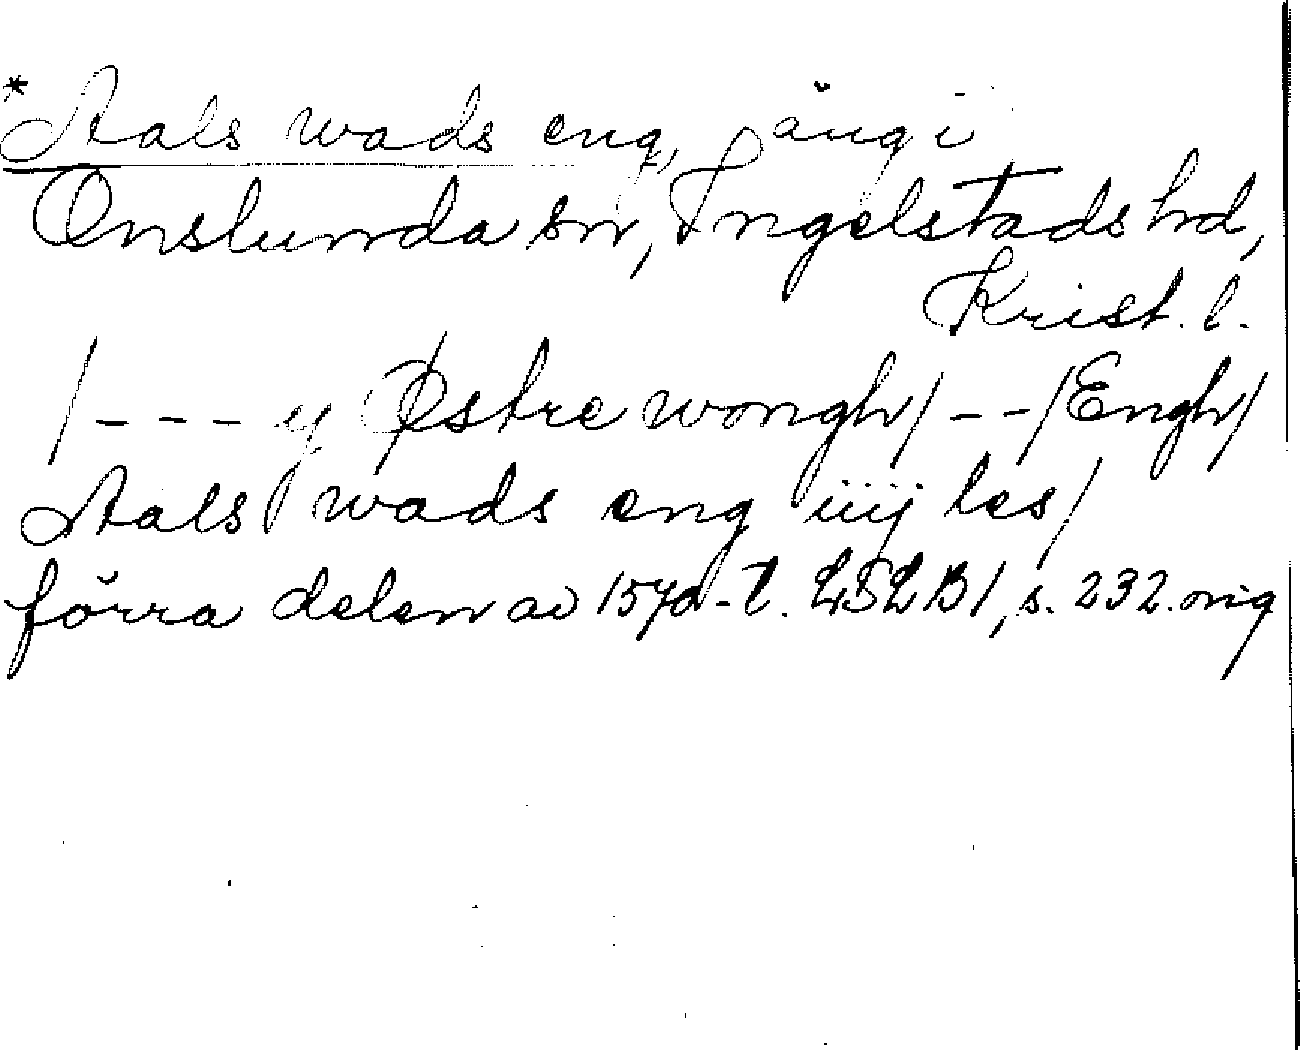 *Aals wads eng, äng i
Onslunda sn, Ingelstads hd,
Krist. l.
/---y Østre wongh/--/Engh/
Aals wads eng iiij les/
förra delen av 1570-t. LSLB1, s. 232. orig